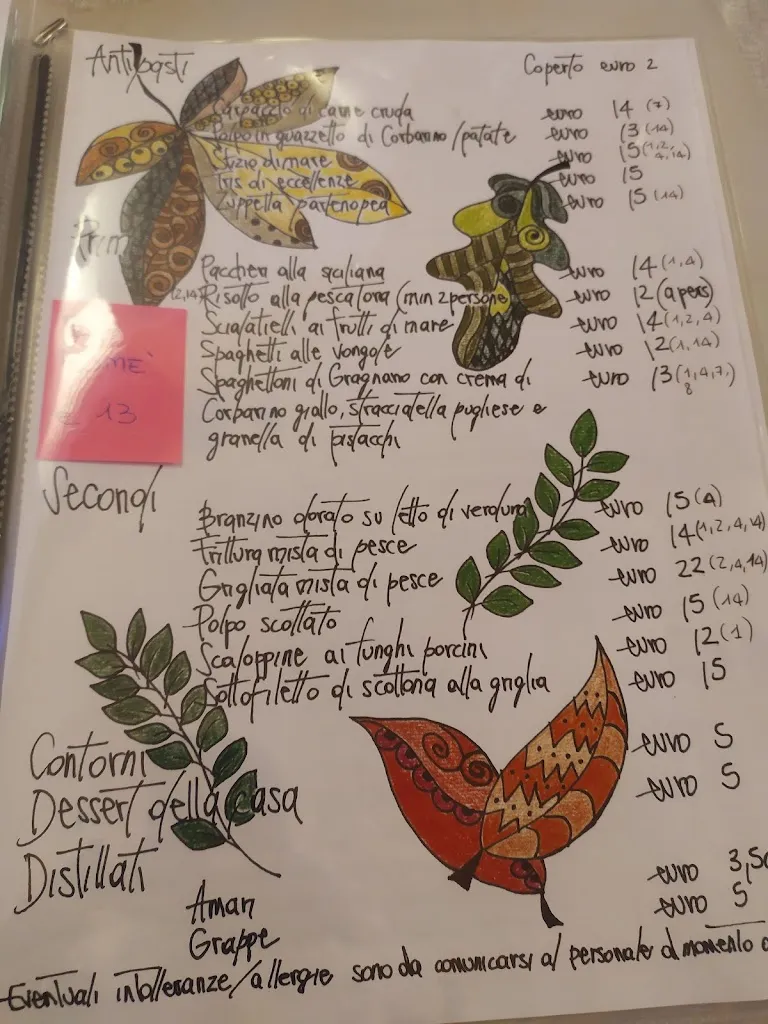 Antipasti Coperto euro 2
Carpaccio di carne cruda euro 14 (7)
Polpo in guazzetto di Corbarino/patate euro 13 (14)
Sfizio di mare euro 15 (1,2,4,14)
Tris di eccellenze euro 15
Zuppetta partenopea euro 15 (14)
Primi
Paccheri alla siciliana euro 14 (1,4)
(2,14) Risotto alla pescatora (min 2 persone euro 12 (a pers)
Scialatielli ai frutti di mare euro 14 (1,2,4)
Spaghetti alle vongole euro 12 (1,14)
Spaghettoni di Gragnano con crema di euro 13 (1,4,7,8
Corbarino giallo, stracciatella pugliese e
granella di pistacchi
13
Secondi
Branzino dorato su letto di verdura euro 15 (4)
Frittura mista di pesce euro 14 (1,2,4,14)
Grigliata mista di pesce euro 22 (2,4,14)
Polpo scottato euro 15 (14)
Scaloppine ai funghi porcini euro 12 (1)
Sottofiletto di scottona alla griglia euro 15
Contorni euro 5
Dessert della casa euro 5
Distillati
Amari euro 3,50
Grappe euro 5
Eventuali intolleranze/allergie sono da comunicarsi al personale al momento